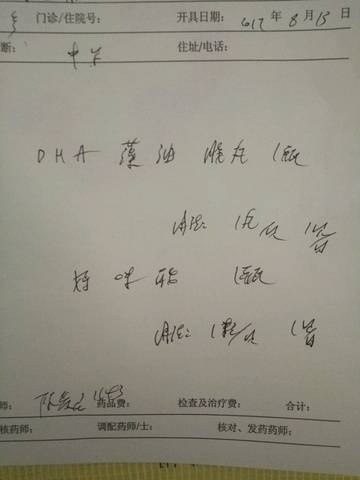 门诊/住院号： 开具日期：2017 年 8 月 15 日
断： 中学 住址/电话：
DHA 藻油 胶丸 1瓶
用法： 1丸/次 1次/日
1瓶
用法： 1粒/次 1次/日
师： 药品费： 检查及治疗费： 合计：
核药师： 调配药师/士： 核对、发药药师：